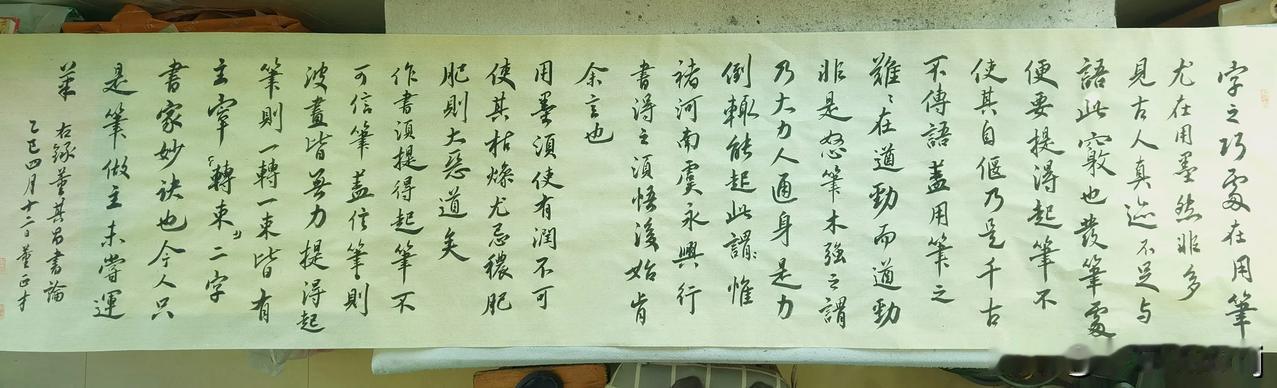 字之巧處在用筆
尤在用墨然非多
見古人真迹不足与
語此竅也發筆處
便要提得起筆不
使其自偃乃是千古
不傳語蓋用筆之
難々在遒勁而遒勁
非是怒筆木強之謂
乃大力人通身是力
倒輒能起此謂惟
褚河南虞永興行
書得之須悟後始肯
余言也
用墨須使有潤不可
使其枯燥尤忌穠肥
肥則大惡道矣
作書須提得起筆不
可信筆蓋信筆則
波畫皆無力提得起
筆則一轉一束皆有
主宰「轉束」二字
書家妙訣也今人只
是筆做主未嘗運
筆
右錄董其昌書論
乙巳四月十二日董正才